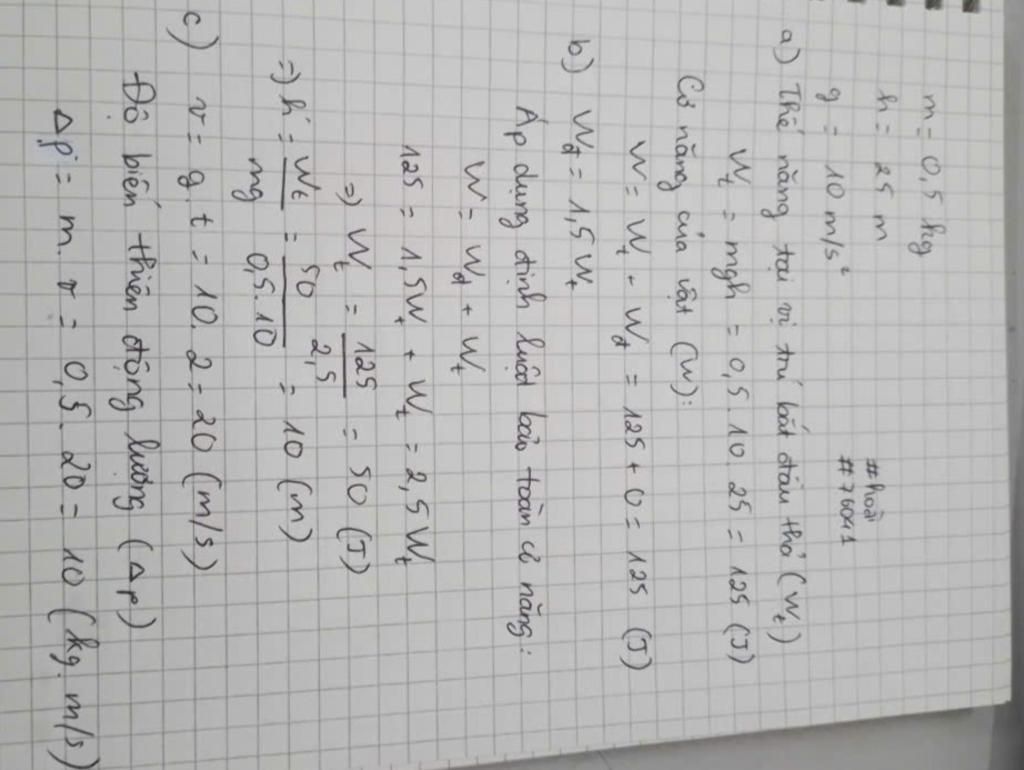 m = 0,5 kg
h = 25 m
g = 10 m/s²
#hoài
#76041
a) Thế năng tại vị trí bắt đầu thả (Wt)
Wt = mgh = 0,5.10.25 = 125 (J)
Cơ năng của vật (W):
W = Wt + Wđ = 125 + 0 = 125 (J)
b) Wđ = 1,5Wt
Áp dụng định luật bảo toàn cơ năng:
W = Wđ + Wt
125 = 1,5Wt + Wt = 2,5Wt
=) Wt = 125/2,5 = 50 (J)
=) h' = Wt/mg = 50/0,5.10 = 10 (m)
c) v = g.t = 10.2 = 20 (m/s)
Độ biến thiên động lượng (Δp)
Δp = m.v = 0,5.20 = 10 (kg.m/s)